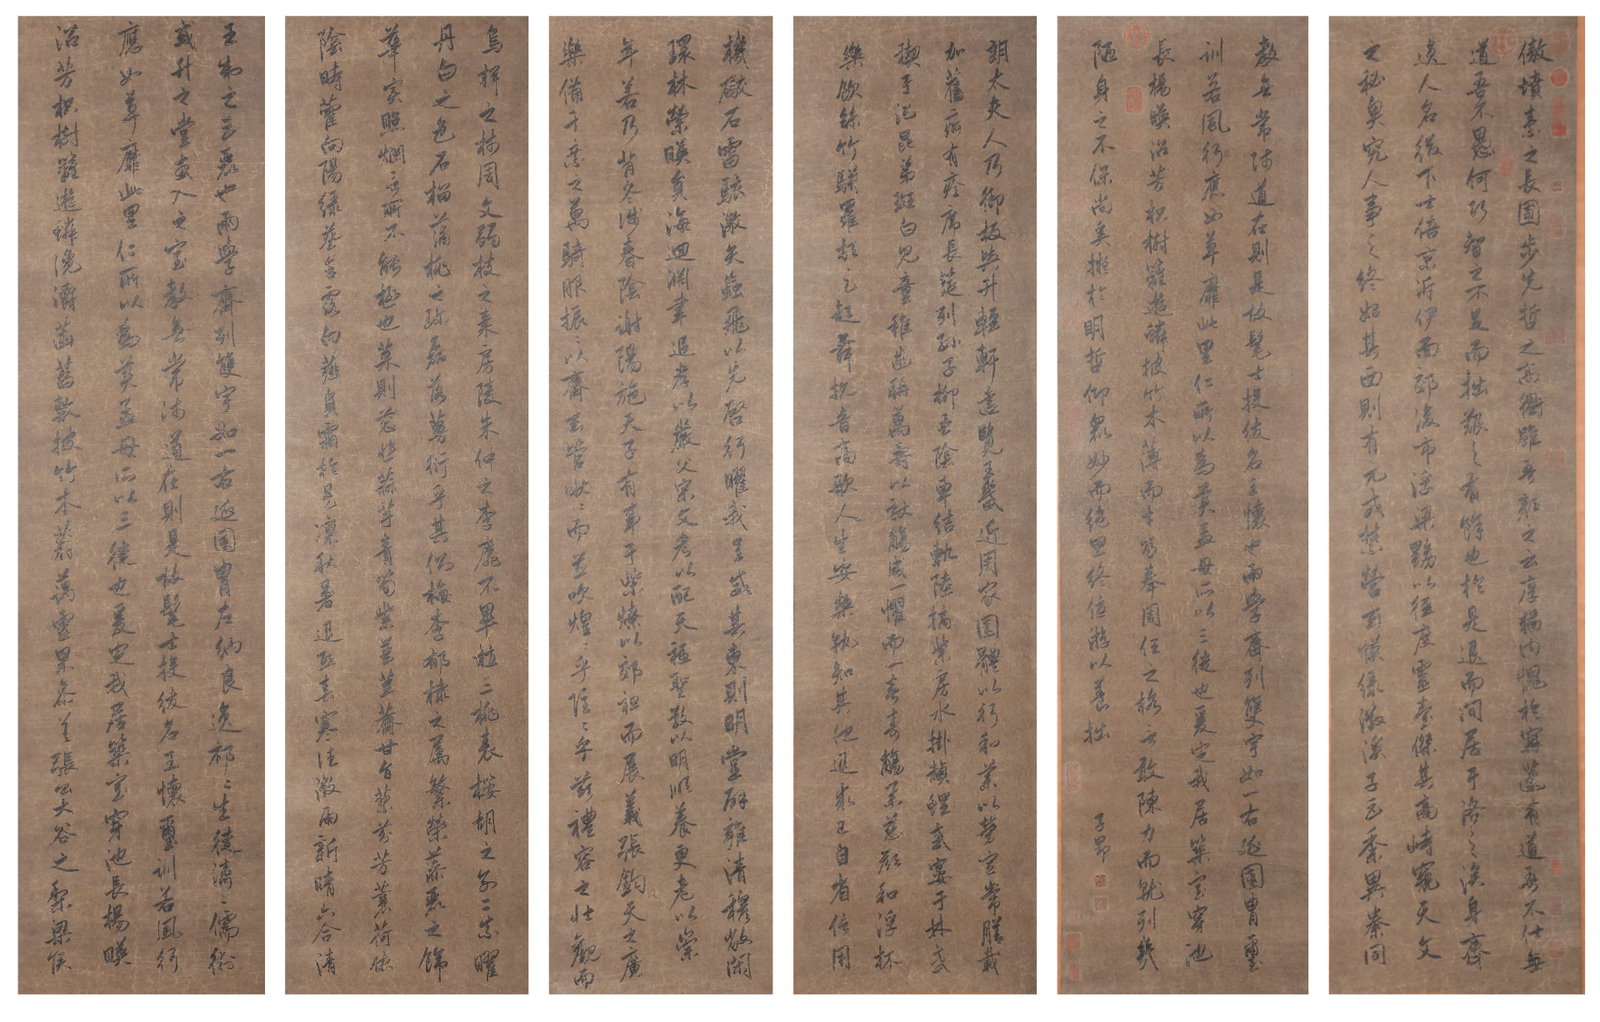 傲墳素之長圃步先哲之高衢雖吾顏之云厚猶內愧於甯蘧有道吾不仕無
道吾不愚何巧智之不足而拙艱之有餘也於是退而閒居于洛之涘身齊
逸人名綴下士陪京泝伊面郊後市浮梁黝以徑度靈臺傑其高峙窺天文
之秘奧究人事之終始其西則有元戎禁營玄幙綠徽谿子巨黍異絭同
教無常師道在則是故髦士投紱名王懷也兩學齊列雙宇如一右延國胄璽
訓若風行應如草靡此里仁所以為美孟母所以三徙也爰定我居築室穿池
長楊暎沼芳枳樹籬遊鱗披竹木薄而才劣奉周任之格言敢陳力而就列幾
陋身之不保尚奚擬於明哲仰眾妙而絕思終優游以養拙
子昂
朗太夫人乃御板輿升輕軒遠覽王畿近周家園體以行和藥以勞宣常膳載
加舊痾有痊席長筵列孫子柳垂陰車結軌陸摘紫房水掛赬鯉或宴于林或
禊于汜昆弟斑白兒童稚齒稱萬壽以獻觴咸一懼而一喜壽觴舉慈顏和浮杯
樂飲絲竹駢羅頓足起舞抗音高歌人生安樂孰知其他退求己自省信用
機礮石雷駭激矢蝱飛以先啓行曜我皇威其東則明堂辟雍清穆敞閑
環林縈暎員海迴淵聿追孝以嚴父宗文考以配天祗聖敬以明順養更老以崇
年若乃背冬涉春陰謝陽施天子有事于柴燎以郊祖而展義張鈞天之廣
樂備千乘之萬騎服振〻以齊玄管啾〻而並吹煌〻乎隱〻乎茲禮容之壯觀而
烏椑之柿周文弱枝之棗房陵朱仲之李靡不畢植三桃表櫻胡之別二柰曜
丹白之色石榴蒲桃之珍磊落蔓衍乎其側梅李郁棣之屬繁榮藻麗之飾
華實照爛言所不能極也菜則葱韭蒜芋青筍紫薑堇薺甘旨蓼荾芬芳蘘荷依
陰時藿向陽綠葵含露白薤負霜於是凜秋暑退熙春寒往微雨新晴六合清
王制之巨麗也兩學齊列雙宇如一右延國胄左納良逸祁〻生徒濟〻儒術
或升之堂或入之室教無常師道在則是故髦士投紱名王懷璽訓若風行
應如草靡此里仁所以為美孟母所以三徙也爰定我居築室穿池長楊暎
沼芳枳樹籬遊鱗瀺灂菡萏敷披竹木蓊藹靈果參差張公大谷之梨梁侯